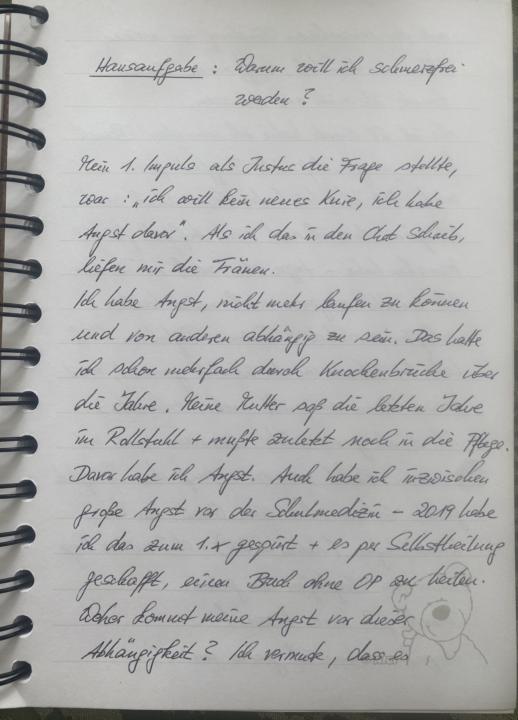 Hausaufgabe : Warum will ich schmerzfrei
werden ?
Mein 1. Impuls als Justus die Frage stellte,
war : „ich will kein neues Knie, ich habe
Angst davor". Als ich das in den Chat schrieb,
liefen mir die Tränen.
Ich habe Angst, nicht mehr laufen zu können
und von anderen abhängig zu sein. Das hatte
ich schon mehrfach durch Knochenbrüche über
die Jahre. Meine Mutter saß die letzten Jahre
im Rollstuhl + mußte zuletzt noch in die Pflege.
Davor habe ich Angst. Auch habe ich inzwischen
große Angst vor der Schulmedizin – 2019 habe
ich das zum 1.x gespürt + es per Selbstheilung
geschafft, einen Bruch ohne OP zu heilen.
Woher kommt meine Angst vor dieser
Abhängigkeit ? Ich vermute, dass es